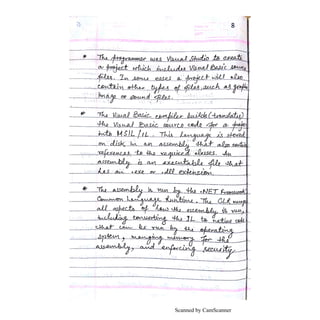 8
The programmer uses Visual Studio to create
a project which includes Visual Basic source
files. In some cases a project will also
contain other types of files such as graphic
image or sound files.
The Visual Basic compiler builds (translates)
the Visual Basic source code for a project
into MSIL/IL. This language is stored
on disk in an assembly that also contains
references to the required classes. An
assembly is an executable file that
has an .exe or .dll extension.
The assembly is run by the .NET Framework
Common Language Runtime. The CLR manages
all aspects of how the assembly is run,
including converting the IL to native code
that can be run by the operating
system, managing memory for the
assembly, and enforcing security.
Scanned by CamScanner